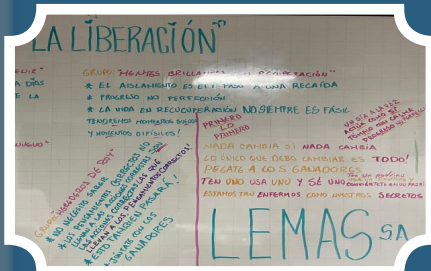 LA LIBERACIÓN
GRUPO: "MENTES BRILLANTES EN RECUPERACIÓN"
* EL AISLAMIENTO ES EL 1 PASO A UNA RECAÍDA
* PROGRESO NO PERFECCIÓN
* LA VIDA EN RECUPERACIÓN NO SIEMPRE ES FÁSIL
TENDREMOS MOMENTOS BUENOS
Y MOMENTOS DIFÍSILES!
A DIOS
E LA
PRIMERO
LO
PRIMERO
UN DÍA A LA VEZ
NADA CAMBIA SI NADA CAMBIA
LO ÚNICO QUE DEBO CAMBIAR ES TODO!
PEGATE A LOS GANADORES
TEN UNO USA UNO Y SÉ UNO
ESTAMOS TAN ENFERMOS COMO NUESTROS SECRETOS
LEMAS SA
GRUPO: "HEREDEROS DE BOB"
* NO NECESITO SABER
* LOS PENSAMIENTOS CORRECTOS NO
LLEVAN A LAS ACCIONES CORRECTAS SON
LAS ACCIONES CORRECTAS LAS QUE
LLEVAN A LOS PENSAMIENTOS CORRECTOS!
* ESTO TAMBIÉN PASARÁ!
* JÚNTATE CON LOS
GANADORES